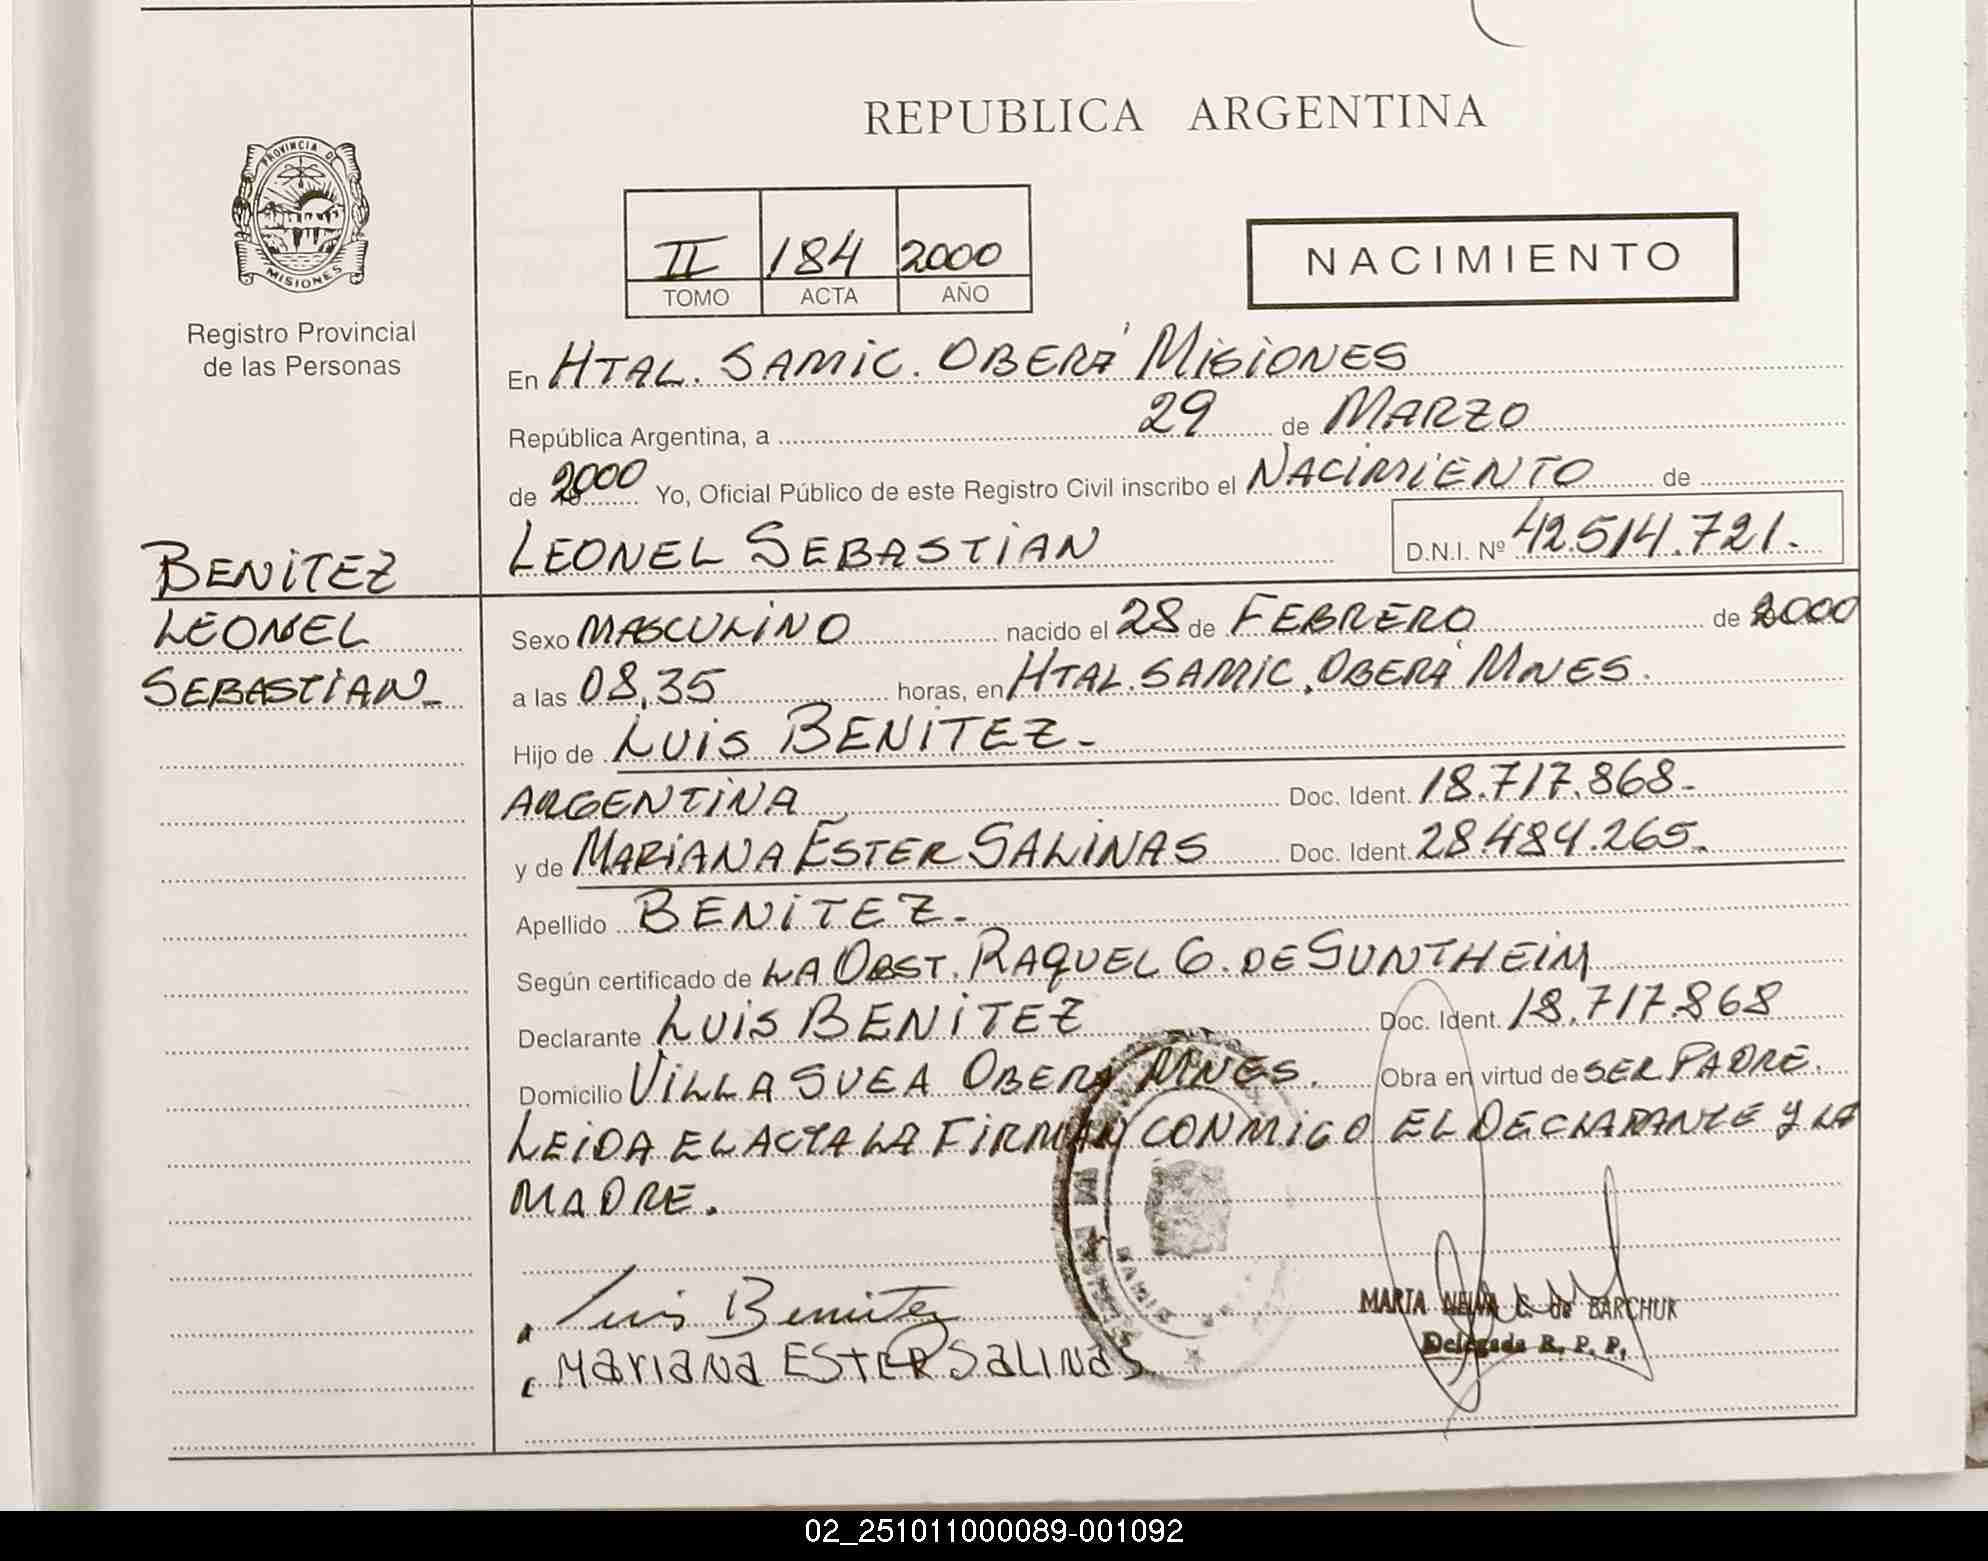 REPUBLICA ARGENTINA
PROVINCIA DE
MISIONES
Registro Provincial
de las Personas
II 184 2000
TOMO ACTA AÑO
NACIMIENTO
En HTAL. SAMIC. OBERÁ MISIONES
República Argentina, a 29 de MARZO
de 2000 Yo, Oficial Público de este Registro Civil inscribo el NACIMIENTO de
LEONEL SEBASTIAN D.N.I. Nº 42.514.721.
BENITEZ
LEONEL
SEBASTIAN_
Sexo MASCULINO nacido el 28 de FEBRERO de 2000
a las 08,35 horas, en HTAL. SAMIC. OBERÁ MNES.
Hijo de LUIS BENITEZ-
ARGENTINA Doc. Ident. 18.717.868-
y de MARIANA ESTER SALINAS Doc. Ident. 28.484.265.
Apellido BENITEZ-
Según certificado de LA OBST. RAQUEL G. DE SUNTHEIM
Declarante LUIS BENITEZ Doc. Ident. 18.717.868
Domicilio VILLA SVEA OBERÁ MNES. Obra en virtud de SER PADRE.
LEIDA EL ACTA LA FIRMAN CONMIGO EL DECLARANTE Y LA
MADRE.
Luis Benitez
MARIANA ESTER SALINAS
MARTA C. de BARCHUK
Delegada R. P. P.
02_251011000089-001092